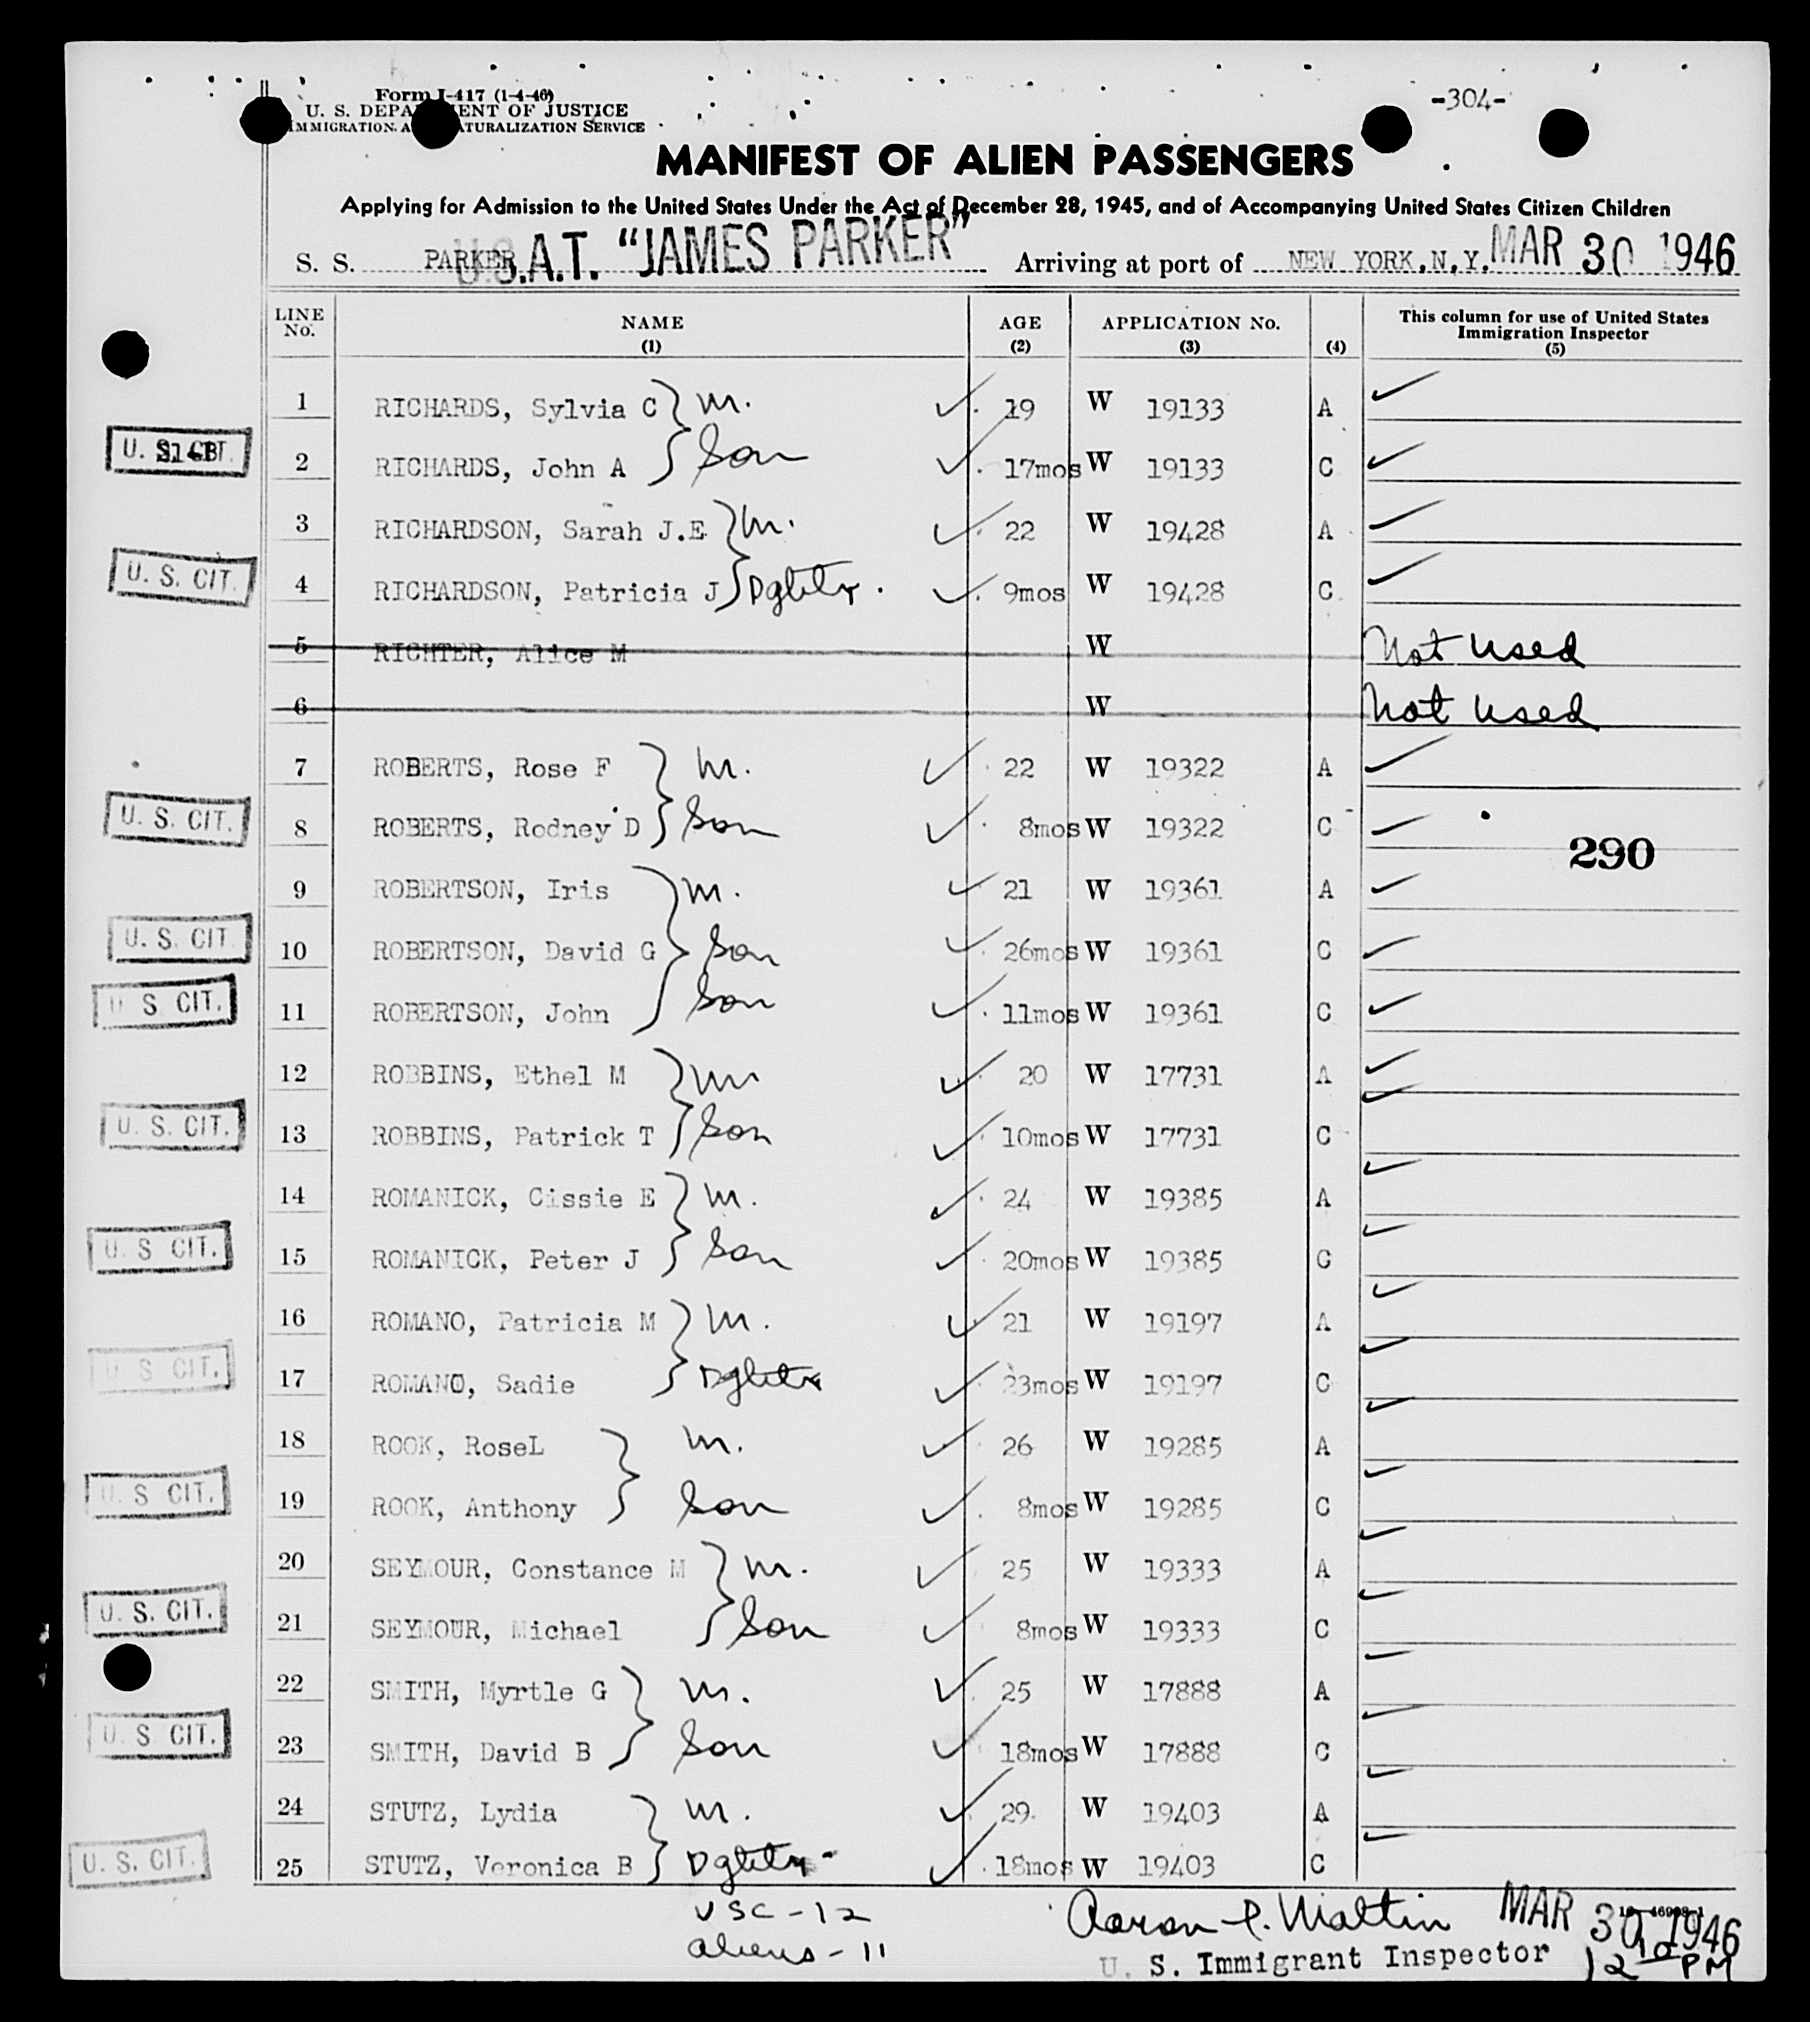 -304-
Form I-417 (1-4-46)
U. S. DEPARTMENT OF JUSTICE
IMMIGRATION AND NATURALIZATION SERVICE
MANIFEST OF ALIEN PASSENGERS
Applying for Admission to the United States Under the Act of December 28, 1945, and of Accompanying United States Citizen Children
S. S. PARKER U.S.A.T. “JAMES PARKER” Arriving at port of NEW YORK, N.Y. MAR 30 1946
LINE No. NAME (1) AGE (2) APPLICATION No. (3) (4) This column for use of United States Immigration Inspector (5)
1 RICHARDS, Sylvia C } m. 19 W 19133 A
U. S. CIT. 2 RICHARDS, John A Son 17mos W 19133 C
3 RICHARDSON, Sarah J.E. } m. 22 W 19428 A
U. S. CIT. 4 RICHARDSON, Patricia J Dghtr. 9mos W 19428 C
5 RICHTER, Alice M W Not used
6 W Not used
7 ROBERTS, Rose F } m. 22 W 19322 A
U. S. CIT. 8 ROBERTS, Rodney D Son 8mos W 19322 C
290
9 ROBERTSON, Iris } m. 21 W 19361 A
U. S. CIT. 10 ROBERTSON, David G Son 26mos W 19361 C
U. S. CIT. 11 ROBERTSON, John Son 11mos W 19361 C
12 ROBBINS, Ethel M } m 20 W 17731 A
U. S. CIT. 13 ROBBINS, Patrick T Son 10mos W 17731 C
14 ROMANICK, Cissie E } m. 24 W 19385 A
U. S. CIT. 15 ROMANICK, Peter J Son 20mos W 19385 C
16 ROMANO, Patricia M } m. 21 W 19197 A
U. S. CIT. 17 ROMANO, Sadie Dghtr 23mos W 19197 C
18 ROOK, RoseL } m. 26 W 19285 A
U. S. CIT. 19 ROOK, Anthony Son 8mos W 19285 C
20 SEYMOUR, Constance M } m. 25 W 19333 A
U. S. CIT. 21 SEYMOUR, Michael Son 8mos W 19333 C
22 SMITH, Myrtle G } m. 25 W 17888 A
U. S. CIT. 23 SMITH, David B Son 18mos W 17888 C
24 STUTZ, Lydia } m. 29 W 19403 A
U. S. CIT. 25 STUTZ, Veronica B Dghtr 18mos W 19403 C
USC - 12
aliens - 11
Aaron I. Maltin MAR 30 1946
U. S. Immigrant Inspector 12 10 PM